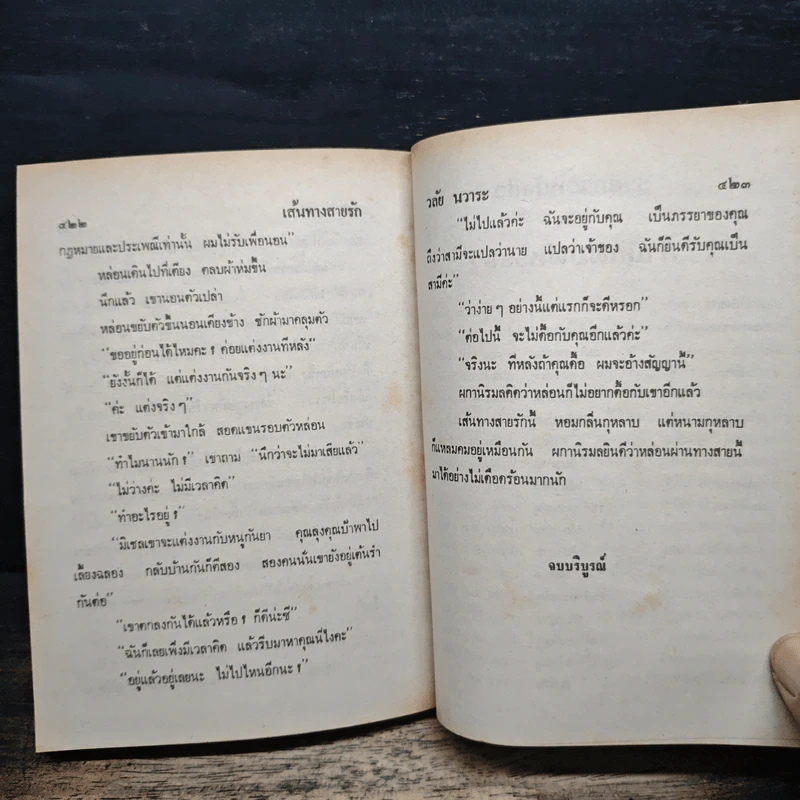 ๔๒๒ เส้นทางสายรัก
กฎหมายและประเพณีเท่านั้น ผมไม่รับเพื่อนอน”
หล่อนเดินไปที่เตียง ตลบผ้าห่มขึ้น
นึกแล้ว เขานอนตัวเปล่า
หล่อนขยับตัวขึ้นนอนเคียงข้าง ชักผ้ามาคลุมตัว
“ขออยู่ก่อนได้ไหมคะ ? ค่อยแต่งงานทีหลัง”
“ยังงั้นก็ได้ แต่แต่งงานกันจริง ๆ นะ”
“ค่ะ แต่งจริง ๆ”
เขาขยับตัวเข้ามาใกล้ สอดแขนรอบตัวหล่อน
“ทำไมนานนัก ? เขาถาม “นึกว่าจะไม่มาเสียแล้ว”
“ไม่ว่างค่ะ ไม่มีเวลาคิด”
“ทำอะไรอยู่ ?”
“มิเชลเขาจะแต่งงานกับหนูกันยา คุณลุงคุณป้าพาไป
เลี้ยงฉลอง กลับบ้านกันก็ตีสอง สองคนนั่นเขายังอยู่เต้นรำ
กันต่อ”
“เขาตกลงกันได้แล้วหรือ ? ก็ดีน่ะซี”
“ฉันก็เลยเพิ่งมีเวลาคิด แล้วรีบมาหาคุณนี่ไงคะ”
“อยู่แล้วอยู่เลยนะ ไม่ไปไหนอีกนะ ?”
วลัย นวาระ ๔๒๓
“ไม่ไปแล้วค่ะ ฉันจะอยู่กับคุณ เป็นภรรยาของคุณ
ถึงว่าสามีจะแปลว่านาย แปลว่าเจ้าของ ฉันก็ยินดีรับคุณเป็น
สามีค่ะ”
“ว่าง่าย ๆ อย่างนี้แต่แรกก็จะดีหรอก”
“ต่อไปนี้ จะไม่ดื้อกับคุณอีกแล้วค่ะ”
“จริงนะ ทีหลังถ้าคุณดื้อ ผมจะอ้างสัญญานี้”
ผกานิรมลคิดว่าหล่อนก็ไม่อยากดื้อกับเขาอีกแล้ว
เส้นทางสายรักนี้ หอมกลิ่นกุหลาบ แต่หนามกุหลาบ
ก็แหลมคมอยู่เหมือนกัน ผกานิรมลยินดีว่าหล่อนผ่านทางสายนี้
มาได้อย่างไม่เดือดร้อนมากนัก
จบบริบูรณ์